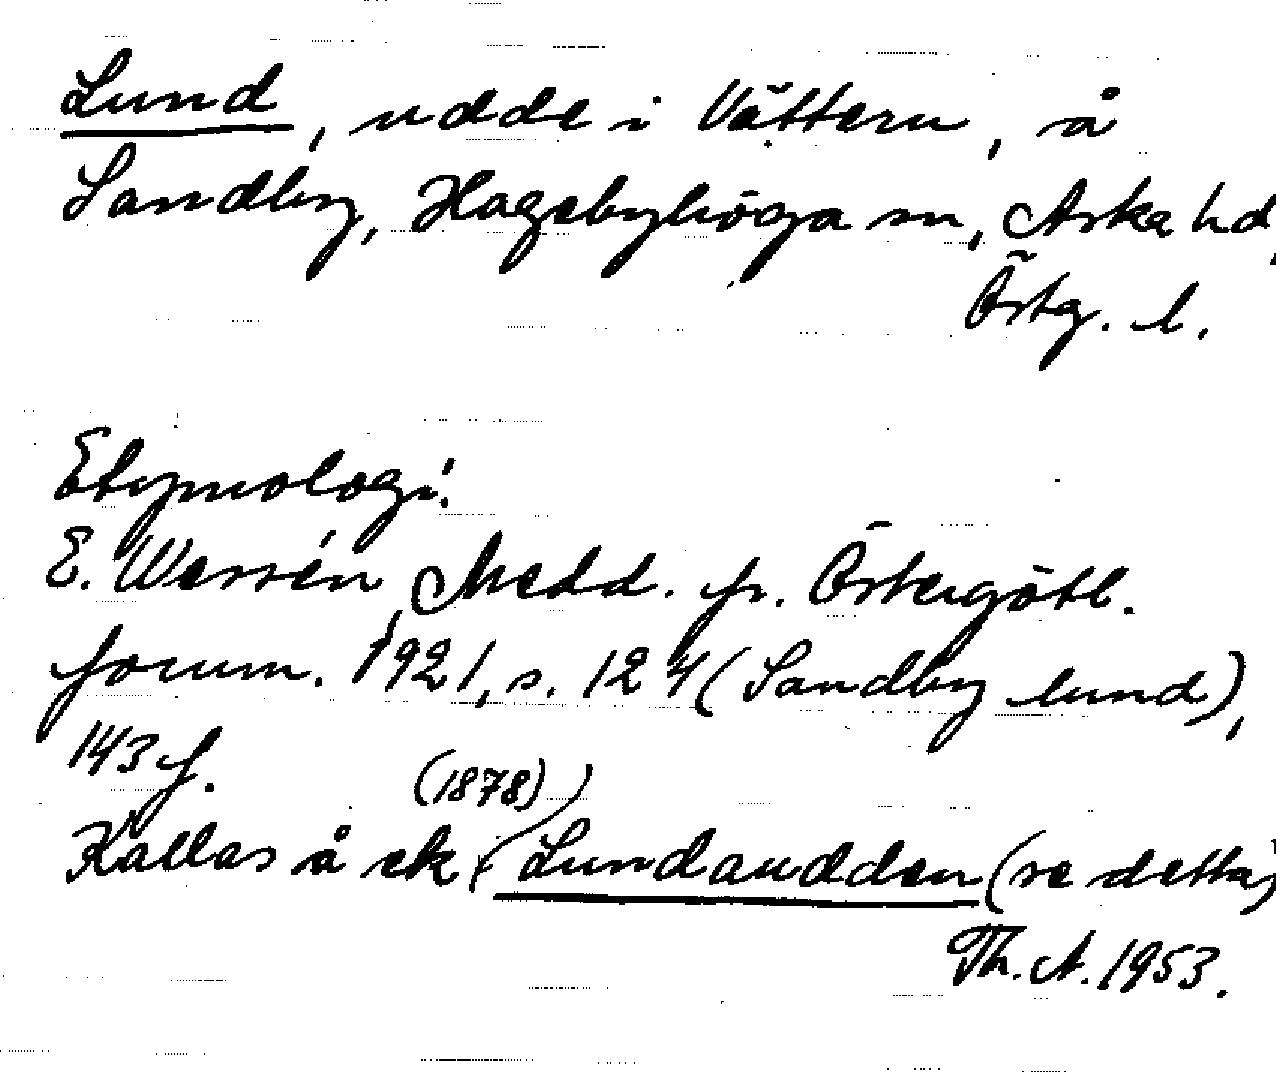 Lund, udde i Vättern, å
Sandby, Hagebyhöga sn, Aska hd,
Östg. l.
Etymologi:
E. Wessén, Medd. fr. Östergötl.
fornm. 1921, s. 124 (Sandby lund),
143 f.
(1878)
Kallas å ek Lundaudden (se detta)
Th. A. 1953.